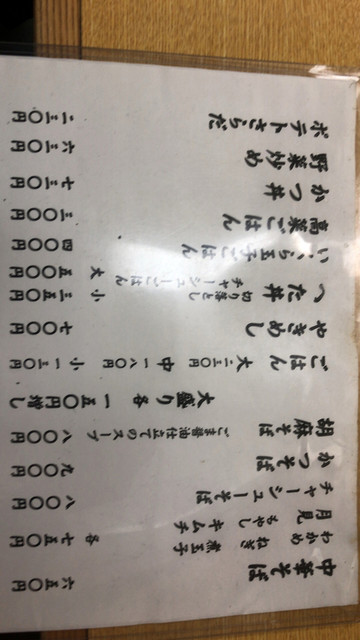 中華そば 六五〇円
わかめ ねぎ 煮玉子
月見 もやし キムチ 各七五〇円
チャーシューそば 八〇〇円
かつそば 九〇〇円
胡麻そば ごま醤油仕立てのスープ 八〇〇円
大盛り各 一五〇円増し
ごはん 大二三〇円 中一八〇円 小一三〇円
やきめし 七〇〇円
へた丼 切り落とし 小 三五〇円
チャーシューごはん 大 五〇〇円
いくら玉子ごはん 四〇〇円
高菜ごはん 三〇〇円
かつ丼 七三〇円
野菜炒め 六三〇円
ポテトさらだ 二三〇円